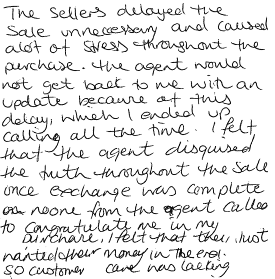 The Sellers delayed the
Sale unnecessary and caused
alot of stress throughout the
purchase. the agent would
not get back to me with an
update because of this
delay, which I ended up
calling all the time. I felt
that the agent disguised
the truth throughout the sale
once exchange was complete
noone from the agent called
to congratulate me in my
purchase, I felt that they just
wanted their money in the end.
so customer care was lacking